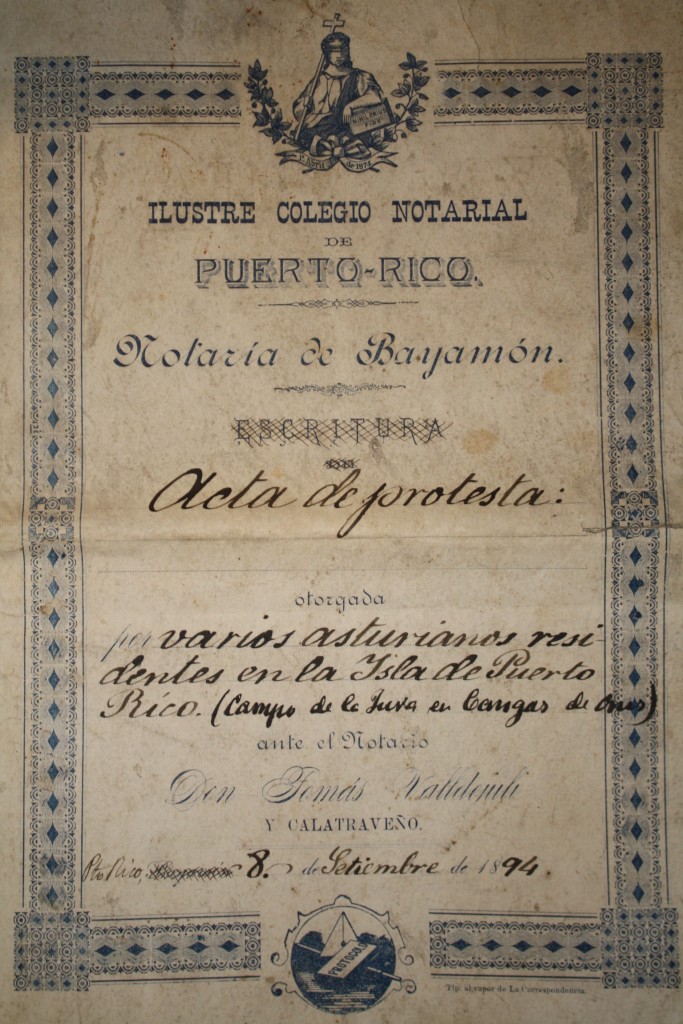 1º Abril de 1874
ILUSTRE COLEGIO NOTARIAL
DE
PUERTO-RICO.
Notaría de Bayamón.
ESCRITURA
DE
Acta de protesta:
otorgada
por varios asturianos resi-
dentes en la Isla de Puerto
Rico. (Campo de la Jura en Cangas de Onís)
ante el Notario
Don Tomás Valldejuli
Y CALATRAVEÑO.
Pto Rico, 8. de Setiembre de 1894.
PROTOCOLO
Tip. al vapor de La Correspondencia.